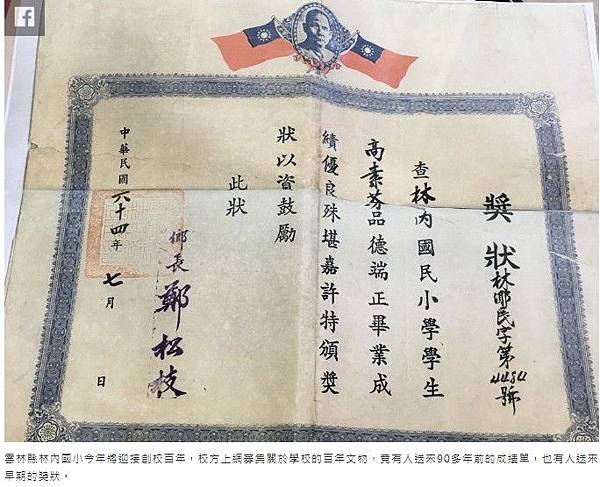 獎狀
林鄉民字第4484號
查林內國民小學學生
高素芬品德端正畢業成
績優良殊堪嘉許特頒獎
狀以資鼓勵
此狀
鄉長 鄭松枝
中華民國六十四年七月 日
雲林縣林內國小今年將迎接創校百年，校方上網募集關於學校的百年文物，竟有人送來90多年前的成績單，也有人送來
早期的獎狀。